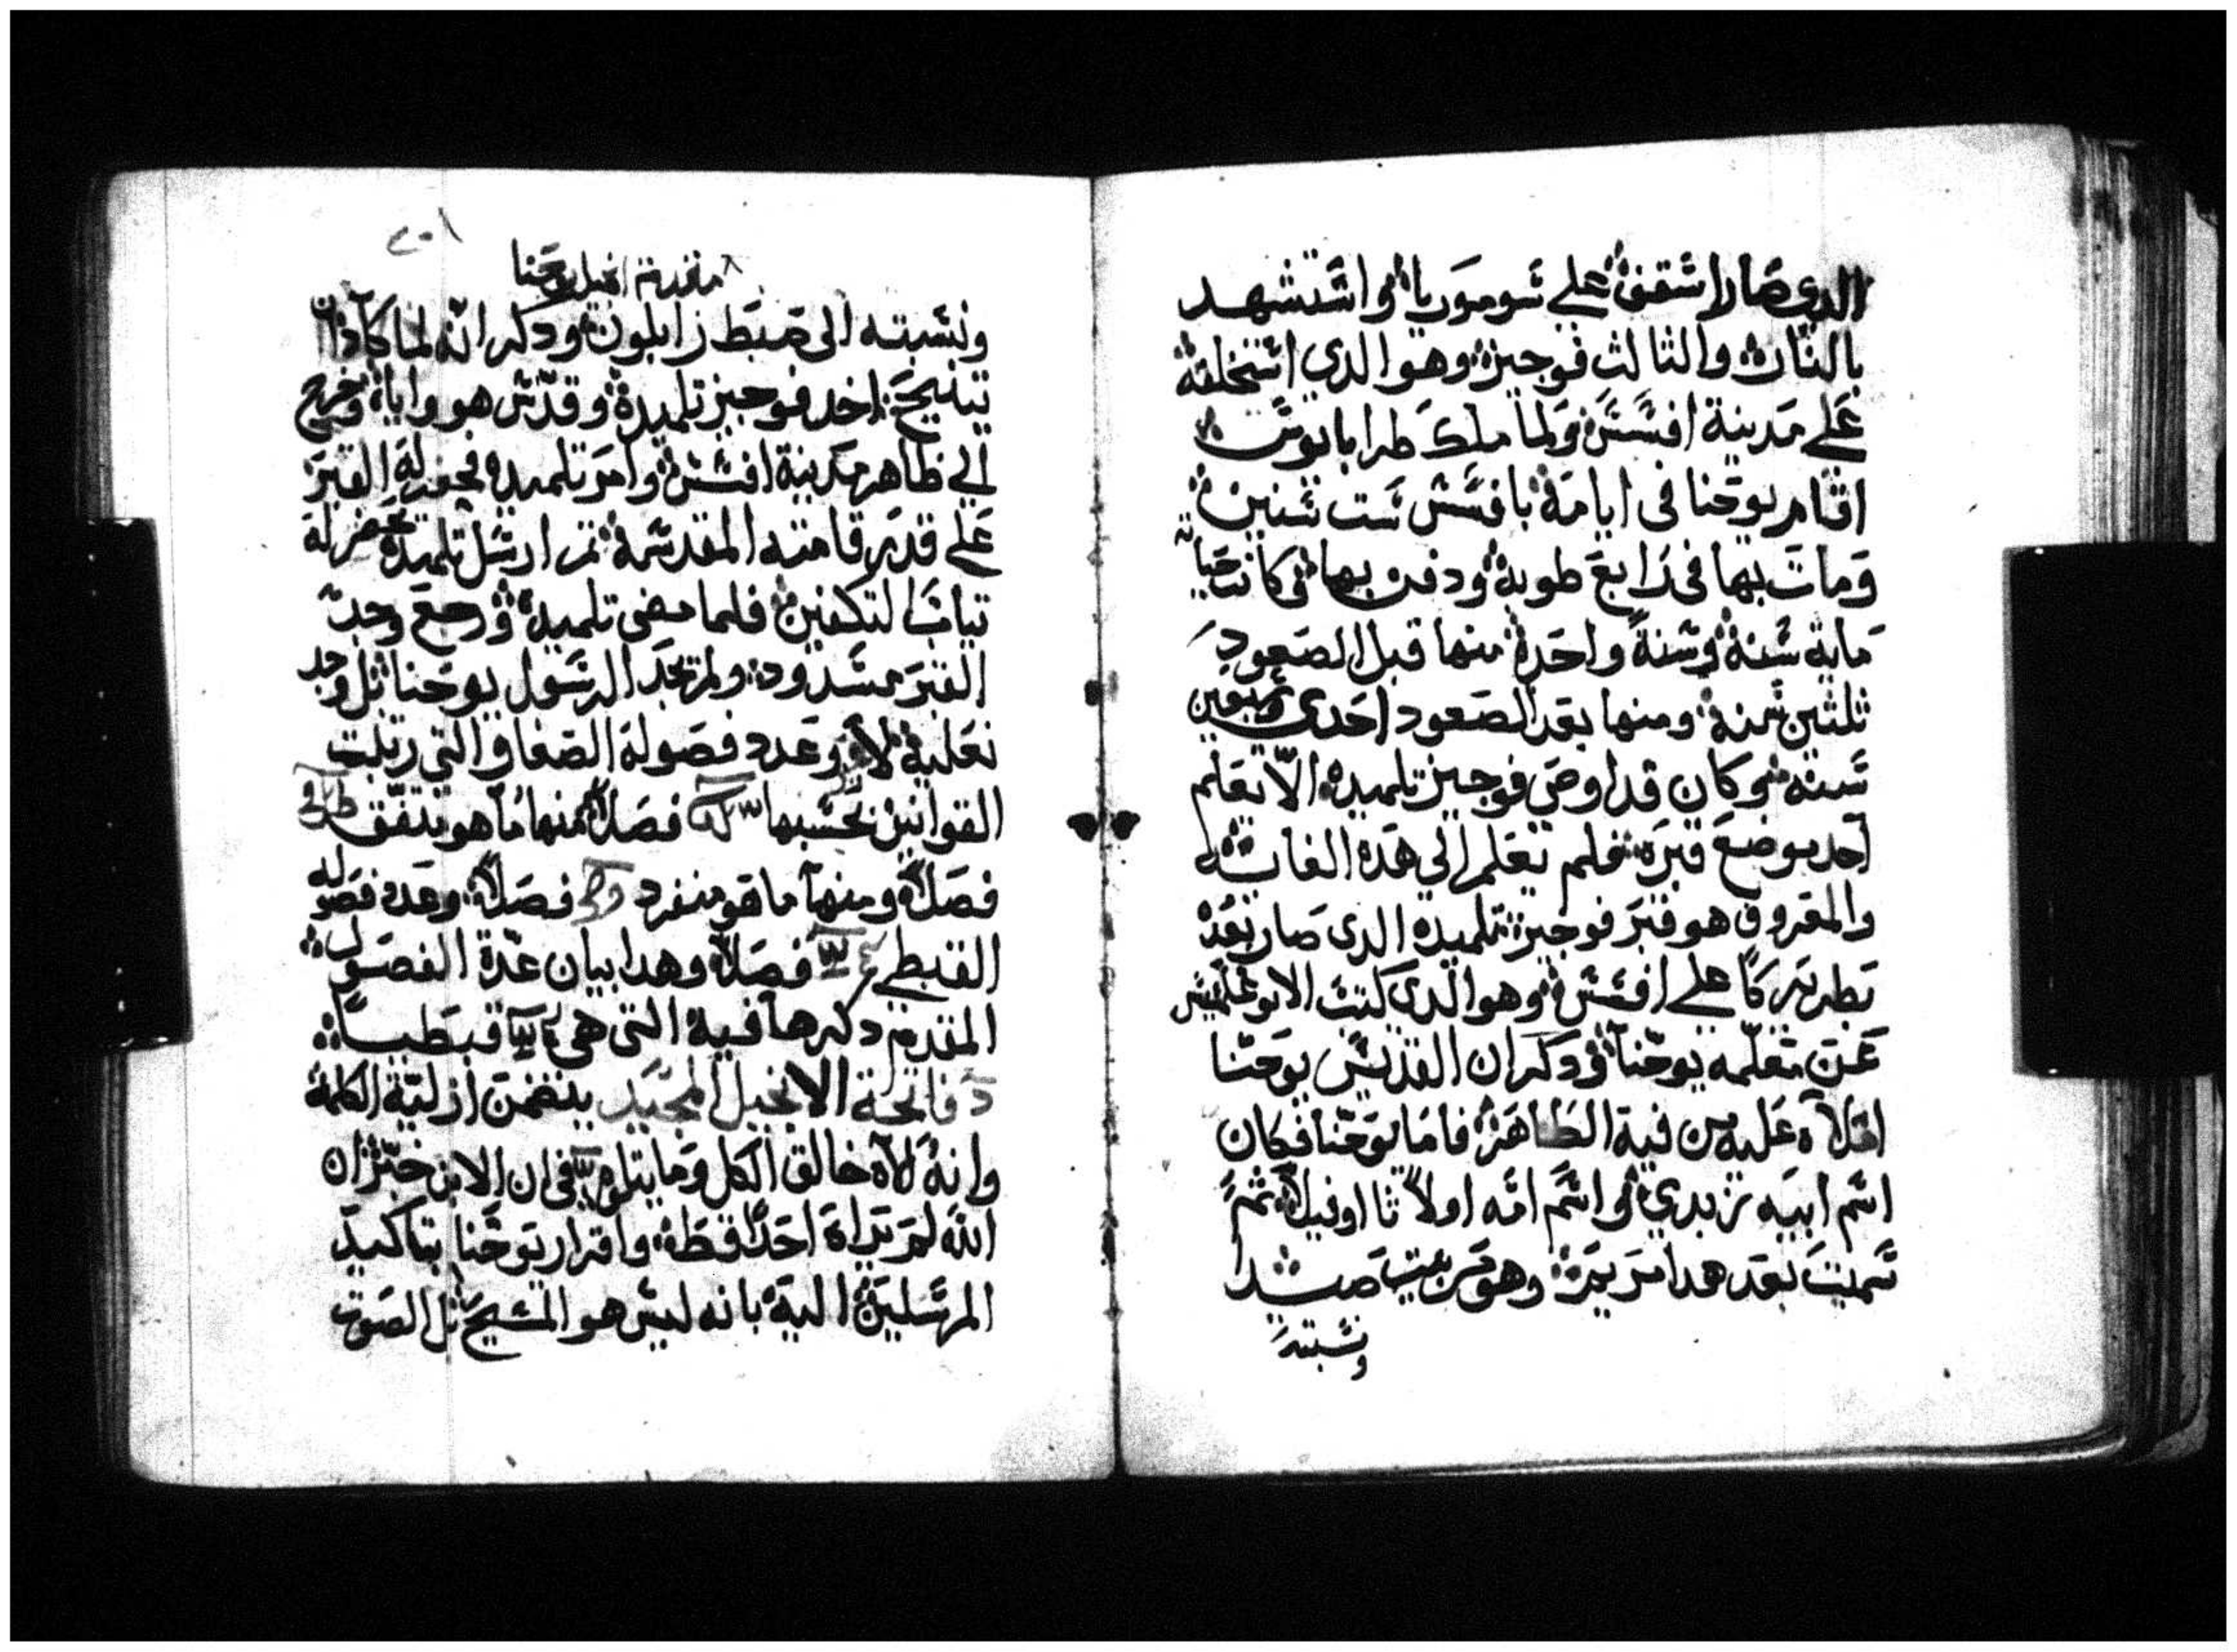 الدى صار اشقف على شوموريا واشتشهد
بالنار والتالت فوجيز وهو الدي اشتخلفه
على مدينة افسس ولما ملك طرابانوس
اقام يوحنا فى ايامه بافسس ست سنين
ومات بها فى رابع طوبه ودفن بها وكانت حياته
ماية سنة وسنة واحدة منها قبل الصعود
ثلثين سنة ومنها بعد الصعود احدى وسبعين
سنه وكان قد اوصى فوجيز تلميده الا يعلم
احد بوضع قبره فلم تعلم الي هده الغايه
والمعروف هو قبر فوجيز تلميده الدى صار بعده
بطريركا على افسس وهو الدى كتب الابوغلمسيس
عن معلمه يوحنا ودكر ان القديس يوحنا
املاه عليه من فيه الطاهر فاما يوحنا فكان
اسم ابيه زبدي واسم امه اولا تا اوفيلا ثم
سميت بعد هدا مريم وهو من بيت صيدا
ونسبته
مقدمة انجيل يوحنا
ونسبته الى سبط زابلون ودكر انه لما كان
يتنيح اخد فوجيز تلميده وقدس هو واياه وخرج
الي ظاهر مدينة افسس وامر تلميده فحفر له القبر
على قدر قامته المقدسة تم ارسل تلميده يحضر له
تيابا لتكفين فلما مضى تلميده ورجع وجد
القبر مسدود ولم يجد الرسول يوحنا بل وجد
نعليه لا وعدد فصوله الصغار التي رتبت
القوانين بحسبها فصلا منها ما هو متفق
فصلا ومنها ما هو منفرد فصلا وعدد فصوله
القبطي فصلا وهدا بيان عدة الفصول
المقدم دكرها فيه التى هى قبطيا
فاتحة الانجيل المجيد يتضمن ازلية الكلمة
وانه الاه خالق الكل وما يتلوه فى ان الابن خبر ان
الله لم يراه احدا قط واقرار يوحنا بتاكيد
المرسلين اليه بانه ليس هو المسيح بل الصوت